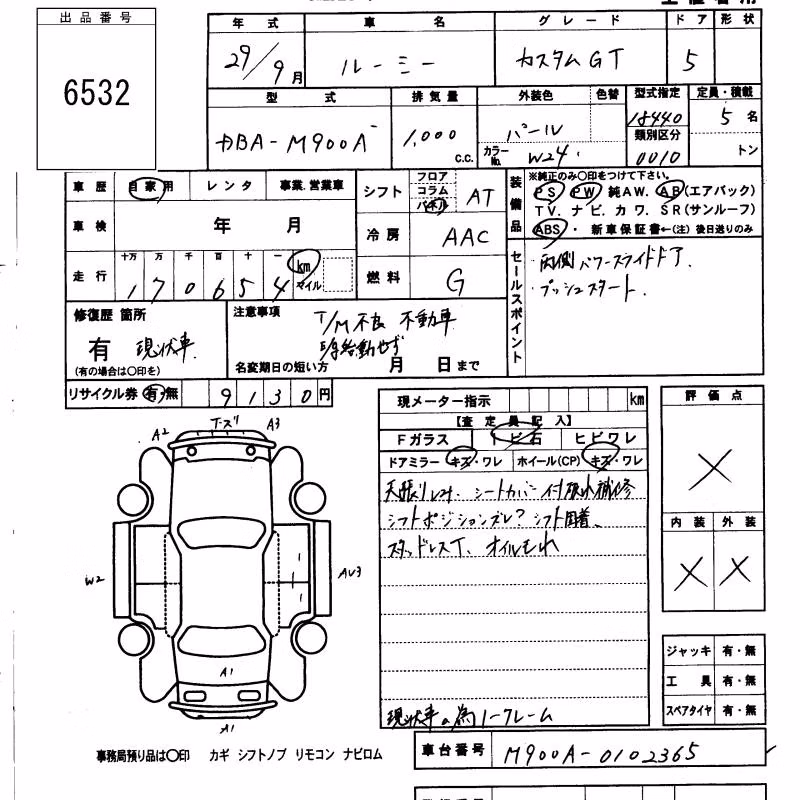 出品番号
6532
年式 車名 グレード ドア 形状
29/9月 ルーミー カスタムGT 5
型式 排気量 外装色 色替 型式指定 定員・積載
DBA-M900A 1,000 c.c. パール 18440 5名
カラーNo. W24 類別区分 0010 トン
車歴 自家用 レンタ 事業.営業車
シフト フロア コラム パネル AT
装備品 ※純正のみ○印をつけて下さい。
PS PW 純AW. AB(エアバック)
TV. ナビ. カワ. SR(サンルーフ)
ABS・ 新車保証書←(注)後日送りのみ
車検 年 月
冷房 AAC
走行 十万 万 千 百 十 一 km マイル
170654
燃料 G
セールスポイント
・両側パワースライドドア.
・プッシュスタート.
修復歴 箇所
有 現状車.
(有の場合は○印を)
注意事項 T/M不良 不動車
始動せず
名変期日の短い方 月 日まで
リサイクル券 有・無 9130円
現メーター指示 km
【査定員記入】
Fガラス トビ石 ヒビワレ
ドアミラー キズ・ワレ ホイール(CP) キズ・ワレ
シートカバー付
シフトポジションズレ? シフト固着、
スタッドレスT、オイルもれ
現状車の為ノークレーム
評価点
×
内装 外装
× ×
A2 A3
W2
AU3
A1
A1
ジャッキ 有・無
工具 有・無
スペアタイヤ 有・無
事務局預り品は○印 カギ シフトノブ リモコン ナビロム
車台番号 M900A-0102365